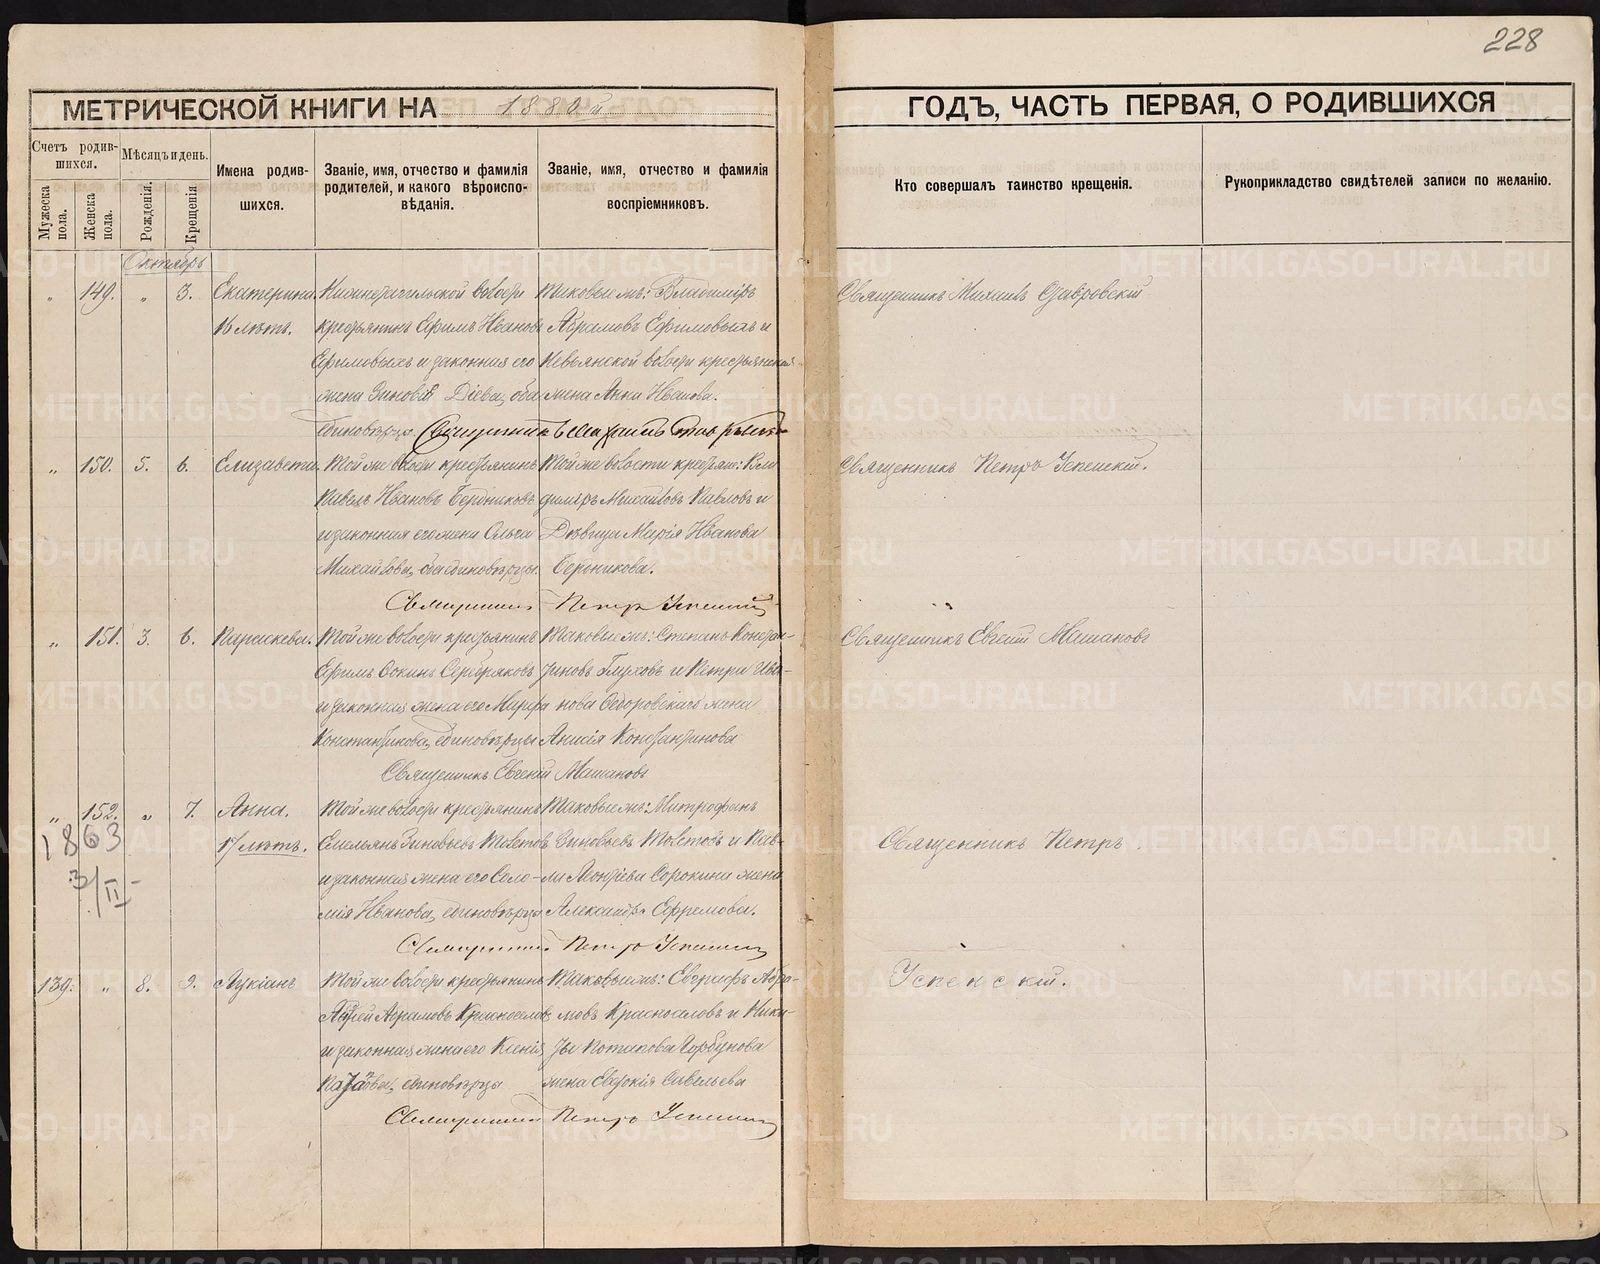 228
МЕТРИЧЕСКОЙ КНИГИ НА 1880й
ГОДЪ, ЧАСТЬ ПЕРВАЯ, О РОДИВШИХСЯ
Счетъ родившихся.
Мужеска пола.
Женска пола.
Мѣсяцъ и день.
Рожденія.
Крещенія.
Имена родившихся.
Званіе, имя, отчество и фамилія родителей, и какого вѣроисповѣданія.
Званіе, имя, отчество и фамилія воспріемниковъ.
Кто совершалъ таинство крещенія.
Рукоприкладство свидѣтелей записи по желанію.
Октябрь
„ 149. „ 3. Екатерина.
16 лѣтъ.
Нижнетагильской волости
крестьянинъ Ефимъ Ивановъ
Ефимовыхъ и законная его
жена Зиновія Діева, оба
единовѣрцы
Таковые жъ: Владиміръ
Абрамовъ Ефимовыхъ и
Невьянской волости крестьянская
жена Анна Иванова.
Священникъ Михаилъ
„ 150. 5. 6. Елизавета.
Той же волости крестьянинъ
Павелъ Ивановъ Бердниковъ
и законная его жена Ольга
Михайлова, оба единовѣрцы.
Той же волости крестьян: Вла
диміръ Михайловъ Павловъ и
Дѣвица Марія Иванова
Священникъ Петръ Успенскій
Священникъ Петръ Успенскій.
„ 151. 3. 6. Параскева.
Той же волости крестьянинъ
Ефимъ Фокинъ Серебряковъ
и законная жена его Марѳа
Константинова, единовѣрцы
Таковые жъ: Степанъ Констан-
тиновъ Глуховъ и Петра Ива-
нова Ѳедоровскаго жена
Анисія Константинова
Священникъ Евгеній Машановъ
Священникъ Евгеній Машановъ
„ 152. „ 7. Анна.
17 лѣтъ.
1863
3/II
Той же волости крестьянинъ
Емельянъ Зиновьевъ Толстовъ
и законная жена его Соло-
мія Иванова, единовѣрцы
Таковые жъ: Митрофанъ
Зиновьевъ Толстовъ и Пав-
ла Леонтьева Сорокина жена
Александра Ефремова.
Священникъ Петръ Успенскій
Священникъ Петръ
139. „ 8. 9. Лукіанъ
Той же волости крестьянинъ
Абрамовъ Красноселовъ
и законная жена его Ксенія
единовѣрцы
Таковые жъ: Евграфъ Абра-
мовъ Красноселовъ и Ники-
ты Потапова Горбунова
жена Евдокія Савельева
Священникъ Петръ Успенскій
Успенскій.
METRIKI.GASO-URAL.RU